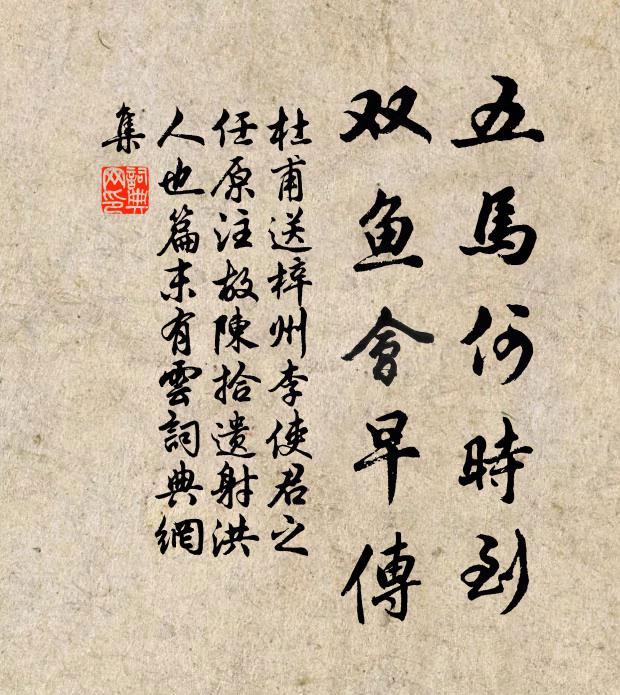 五馬何時到
双鱼會早傳
杜甫送梓州李使君之
任原注故陳拾遺射洪
人也篇末有雲詞典網
集
詞典
网印